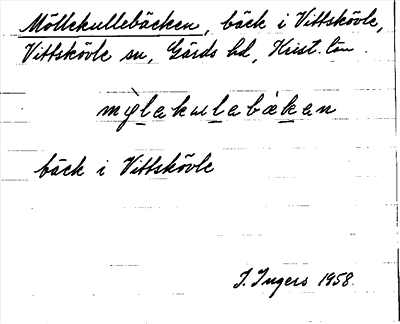 Möllekullebäcken, bäck i Vittskövle,
Vittskövle sn, Gärds hd, Krist. län.
mỳlakulabàkan
bäck i Vittskövle
I. Ingers 1958.